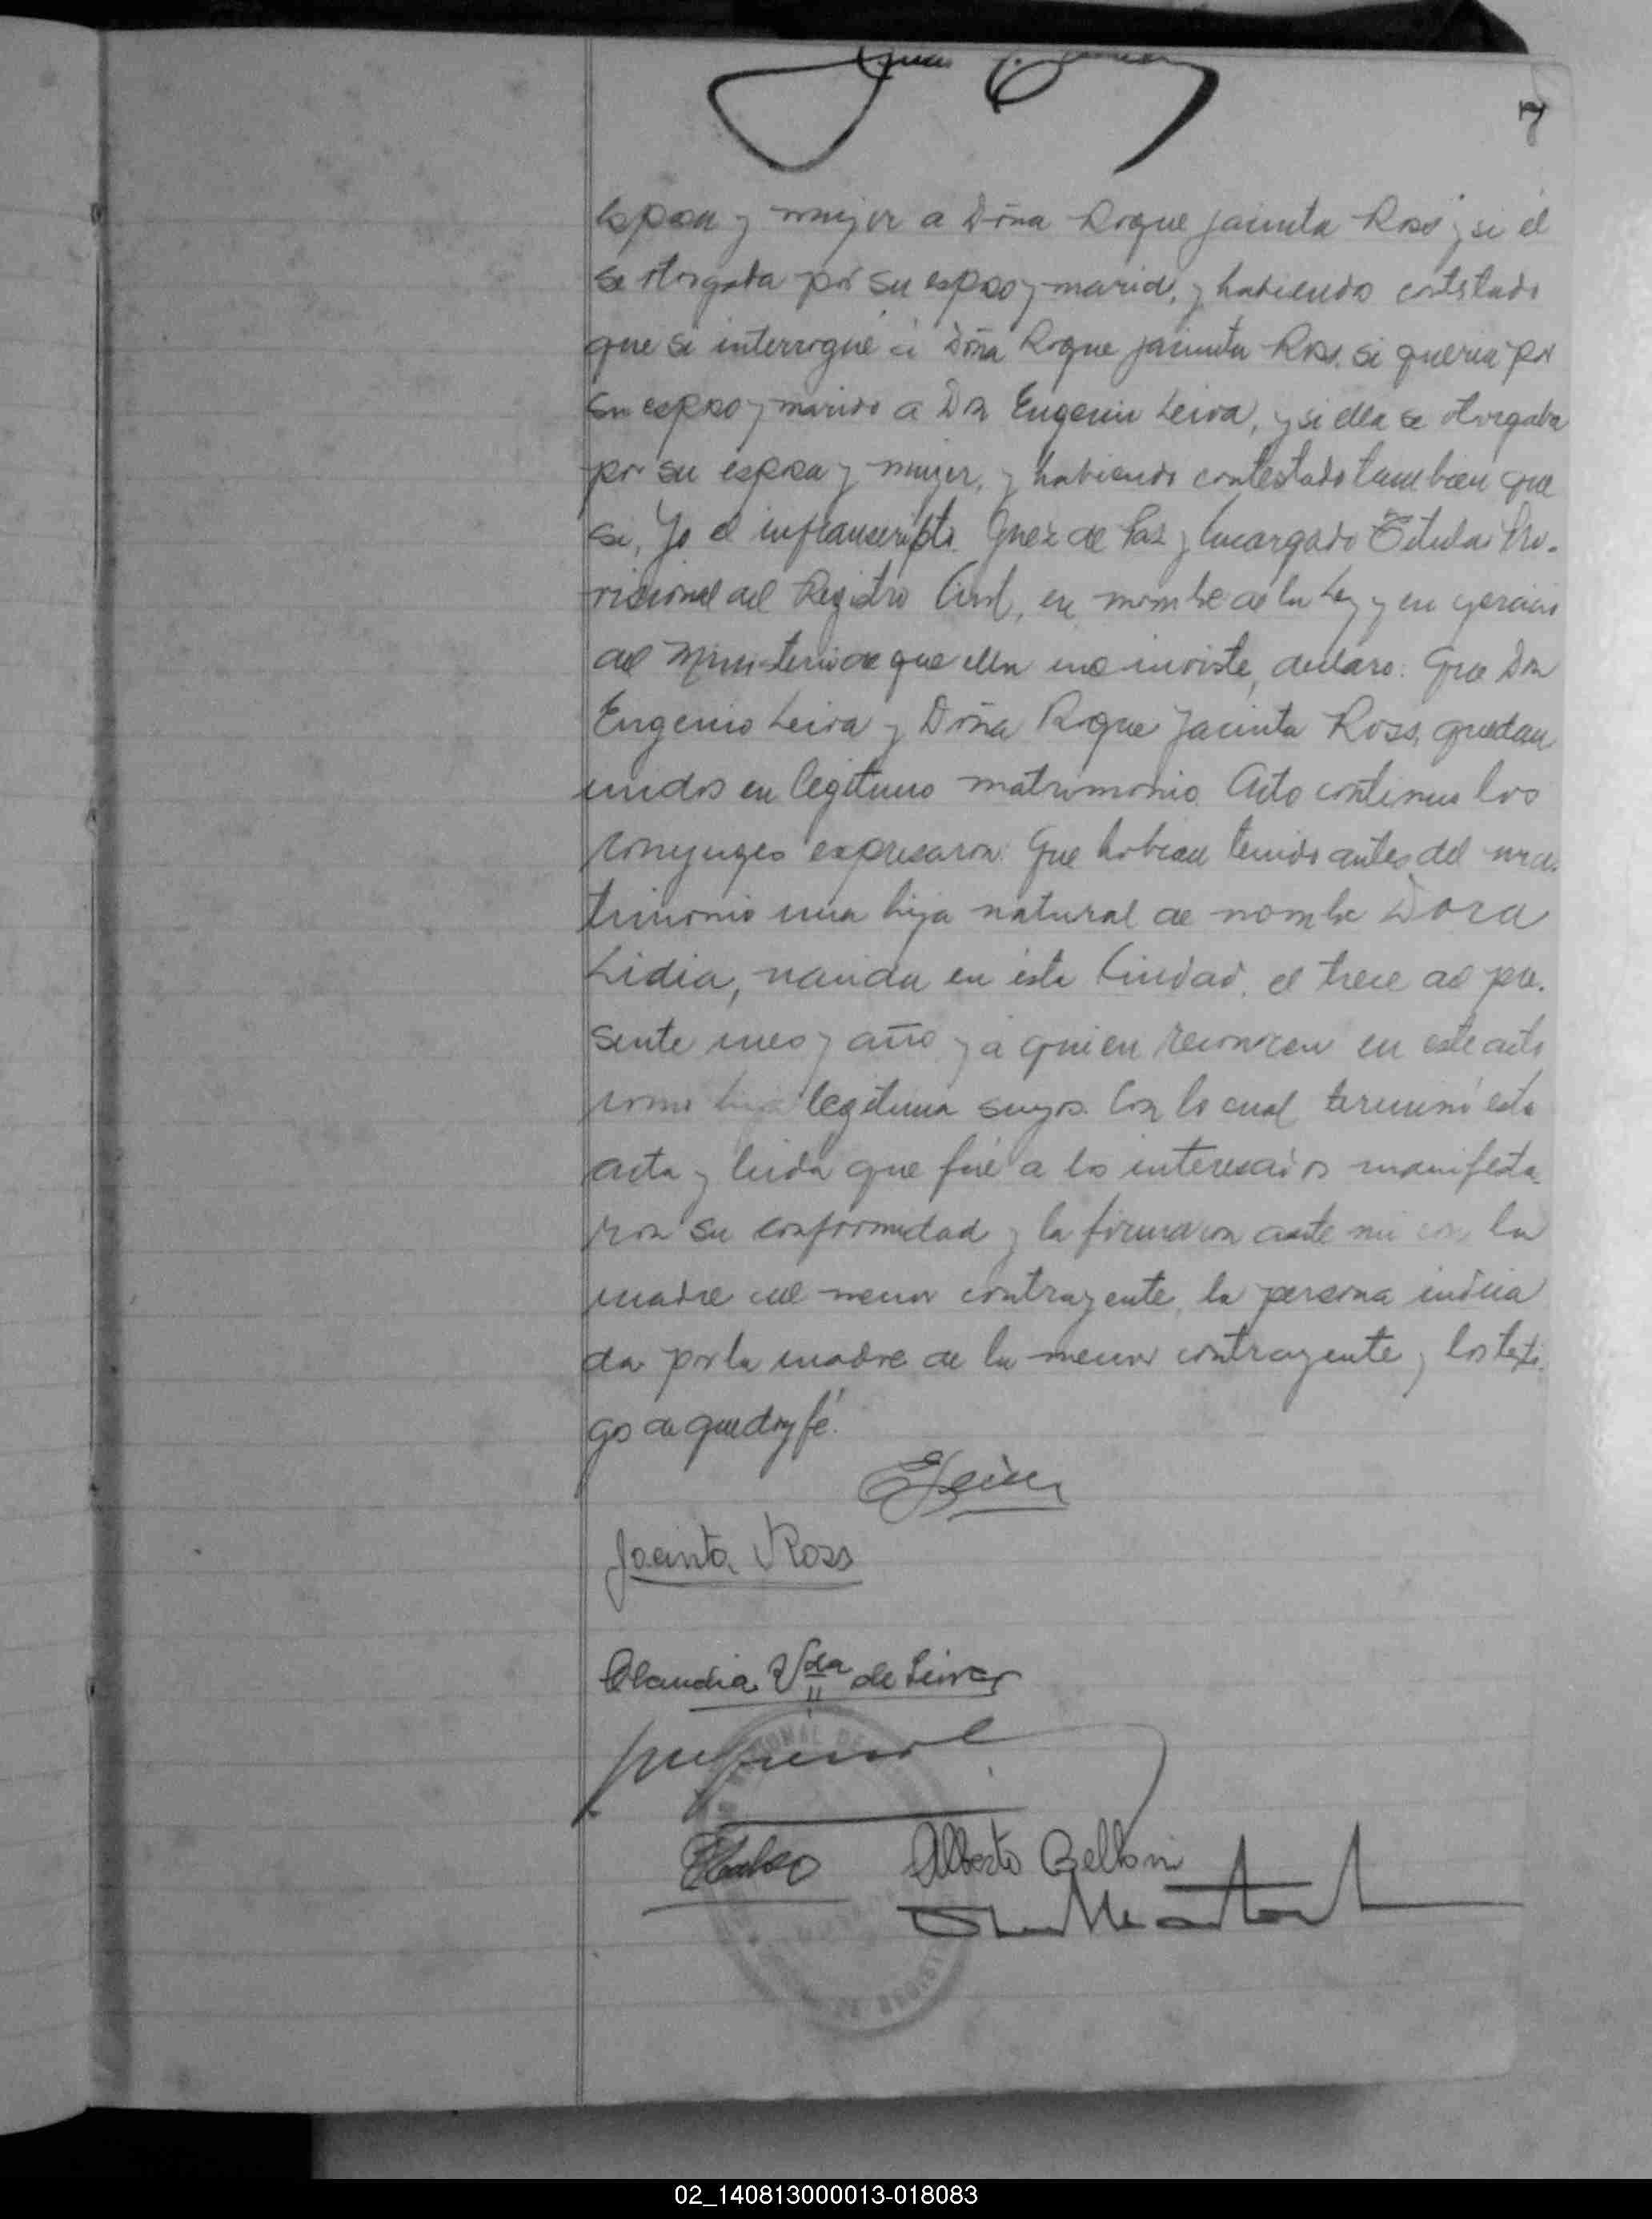 7
esposa y mujer a Doña Roque Jacinta Ross y si él
se otorgaba por su esposo y marido, y habiendo contestado
que si interrogué á Doña Roque Jacinta Ross, si queria por
su esposo y marido a Don Eugenio Leiva, y si ella se otorgaba
por su esposa y mujer, y habiendo contestado tambien que
si, Yo el infranscripto Juez de Paz y Encargado Titular Pro-
visional del Registro Civil, en nombre de la Ley y en ejercicio
del Ministerio de que ella me inviste, declaro: Que Don
Eugenio Leiva y Doña Roque Jacinta Ross, quedan
unidos en legitimo matrimonio. Acto continuo los
conyuges expresaron: Que habian tenido antes del ma-
trimonio una hija natural de nombre Dora
Lidia, nacida en ésta Ciudad, el trece del pre-
sente mes y año y a quien reconocen en este acto
como hija legitima suya. Con lo cual terminó esta
acta y leida que fué a los interesados manifesta-
ron su conformidad y la firmaron ante mi con la
madre del menor contrayente, la persona indica
da por la madre de la menor contrayente y los testi-
gos de que doy fé.
E Leiva
Jacinta Ross
Claudia Vda de Leiva
Alberto Belloni
02_140813000013-018083